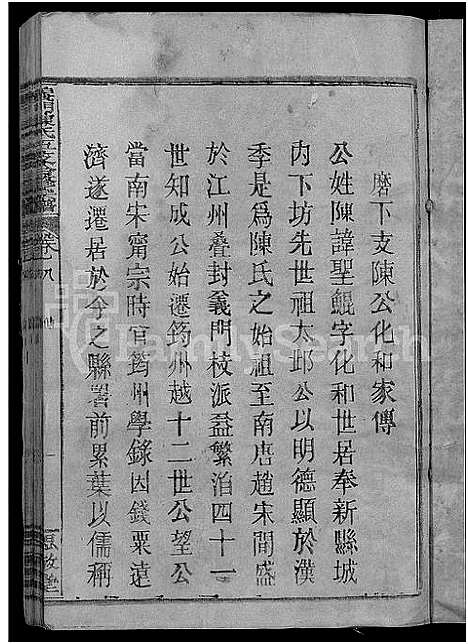 磨下支陳公化和家傳
公姓陳諱聖鯤字化和世居奉新縣城
內下坊先世祖太邱公以明德顯於漢
季是爲陳氏之始祖至南唐趙宋間盛
於江州叠封義門枝派益繁洎四十一
世知成公始遷筠州越十二世公望公
當南宋甯宗時官筠州學錄因錢粟遠
濟遂遷居於今之縣署前累葉以儒稱
陳氏五支
卷八
FamilySearch